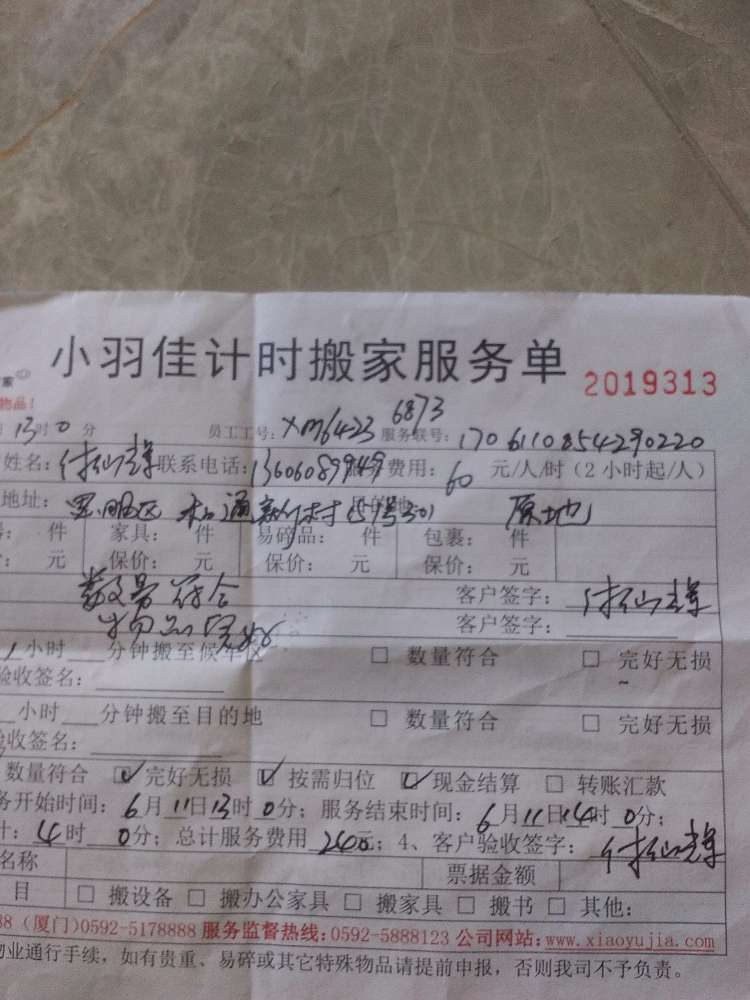 小羽佳计时搬家服务单 2019313
家
物品！
13时0分 员工工号：XM6423 6873 服务联号：170611085429 0220
姓名：付仙辉 联系电话：13606089949 费用：60 元/人/时（2小时起/人）
地址：思明区 松通新村 原地
件 家具： 件 易碎品： 件 包裹： 件
元 保价： 元 保价： 元 保价： 元
数量符合 客户签字：付仙辉
物品完好 客户签字：
小时 分钟搬至候车区 □ 数量符合 □ 完好无损
验收签名：
小时 分钟搬至目的地 □ 数量符合 □ 完好无损
收签名：
数量符合 ☑ 完好无损 ☑ 按需归位 ☑ 现金结算 □ 转账汇款
务开始时间：6月11日13时0分；服务结束时间：6月11日14时0分；
计：4时0分；总计服务费用240元；4、客户验收签字：付仙辉
名称 票据金额
目 □ 搬设备 □ 搬办公家具 □ 搬家具 □ 搬书 □ 其他：
88（厦门）0592-5178888 服务监督热线：0592-5888123 公司网站：www.xiaoyujia.com
物业通行手续，如有贵重、易碎或其它特殊物品请提前申报，否则我司不予负责。